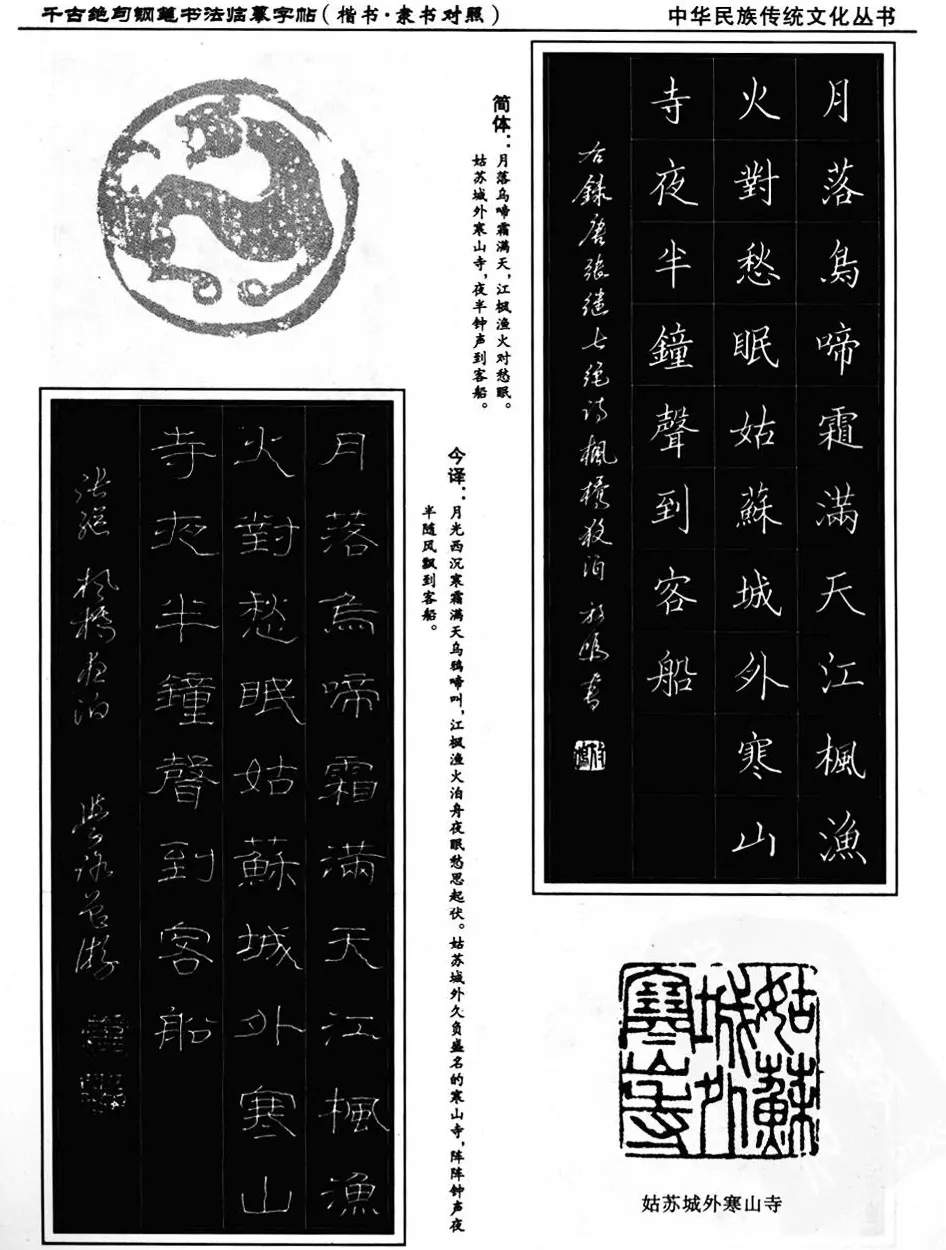 千古绝句钢笔书法临摹字帖(楷书·隶书对照)
中华民族传统文化丛书
月落烏啼霜滿天江楓漁
火對愁眠姑蘇城外寒山
寺夜半鐘聲到客船
右錄唐張继七绝诗楓橋夜泊
简体:月落乌啼霜满天,江枫渔火对愁眠。
姑苏城外寒山寺,夜半钟声到客船。
今译:月光西沉寒霜满天乌鸦啼叫,江枫渔火泊舟夜眠愁思起伏。姑苏城外久负盛名的寒山寺,阵阵钟声夜
半随风飘到客船。
月落烏啼霜滿天江楓漁
火對愁眠姑蘇城外寒山
寺夜半鐘聲到客船
张继 枫橋夜泊
姑蘇
城外
寒山寺
姑苏城外寒山寺